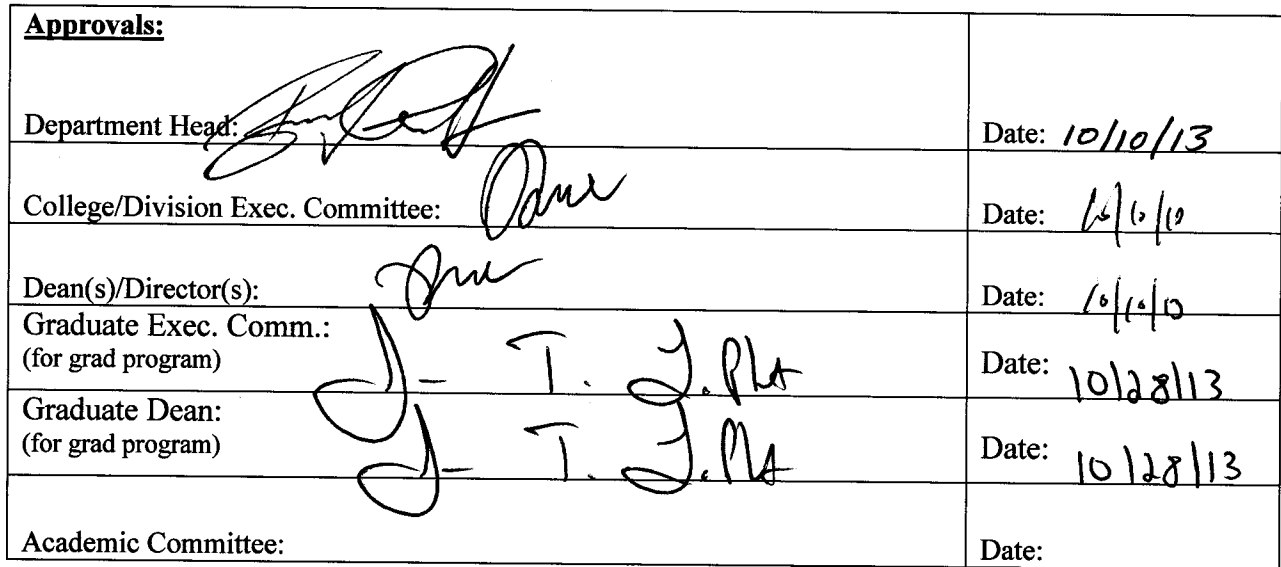 Approvals:
Department Head: Date: 10/10/13
College/Division Exec. Committee: Date:
Dean(s)/Director(s): Date:
Graduate Exec. Comm.:
(for grad program) Date: 10/28/13
Graduate Dean:
(for grad program) Date: 10/28/13
Academic Committee: Date: